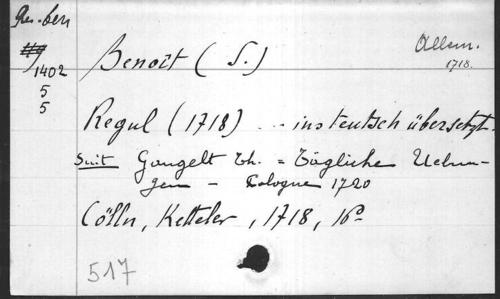 Res. ben
1402
5
5
Allem.
1718.
Benoît (S.)
Regul (1718) ... ins teutsch übersetzt.
Suit Gaugelt Th. = Tägliche Uebun-
gen - Cologne 1720
Cölln, Ketteler, 1718, 16°
517